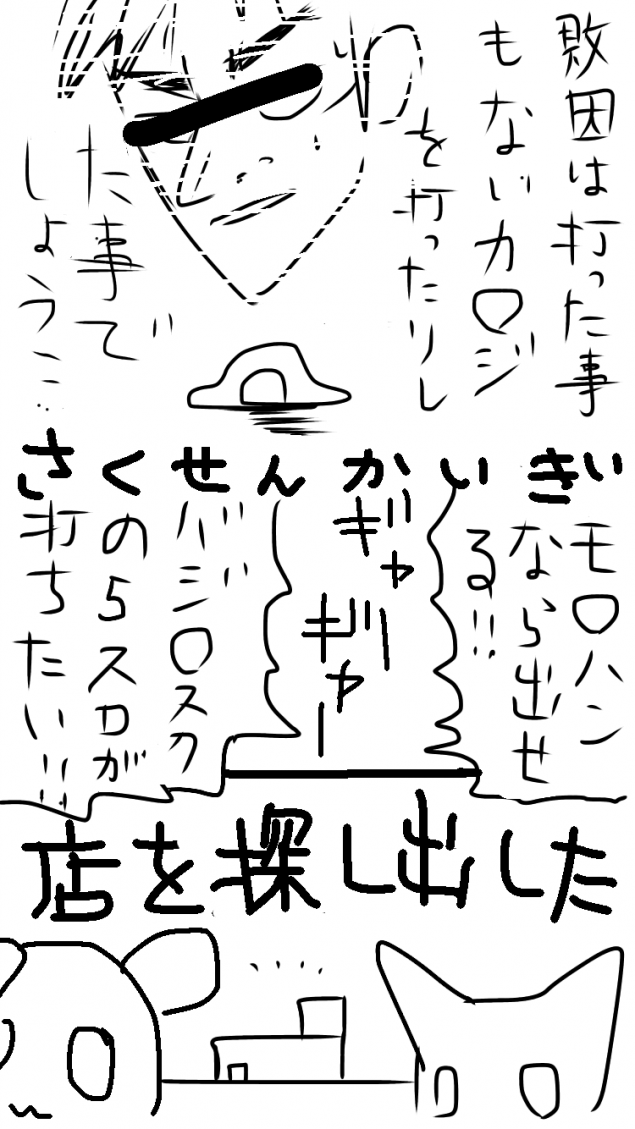 敗因は打った事
もないカロジ
を打ったりし
た事で
しょうニ…
さくせんかいぎ
モロハン
なら出せ
る!!
ギャ
ギリャー
バジロスク
の5スロが
打ちたい!!
店を探し出した